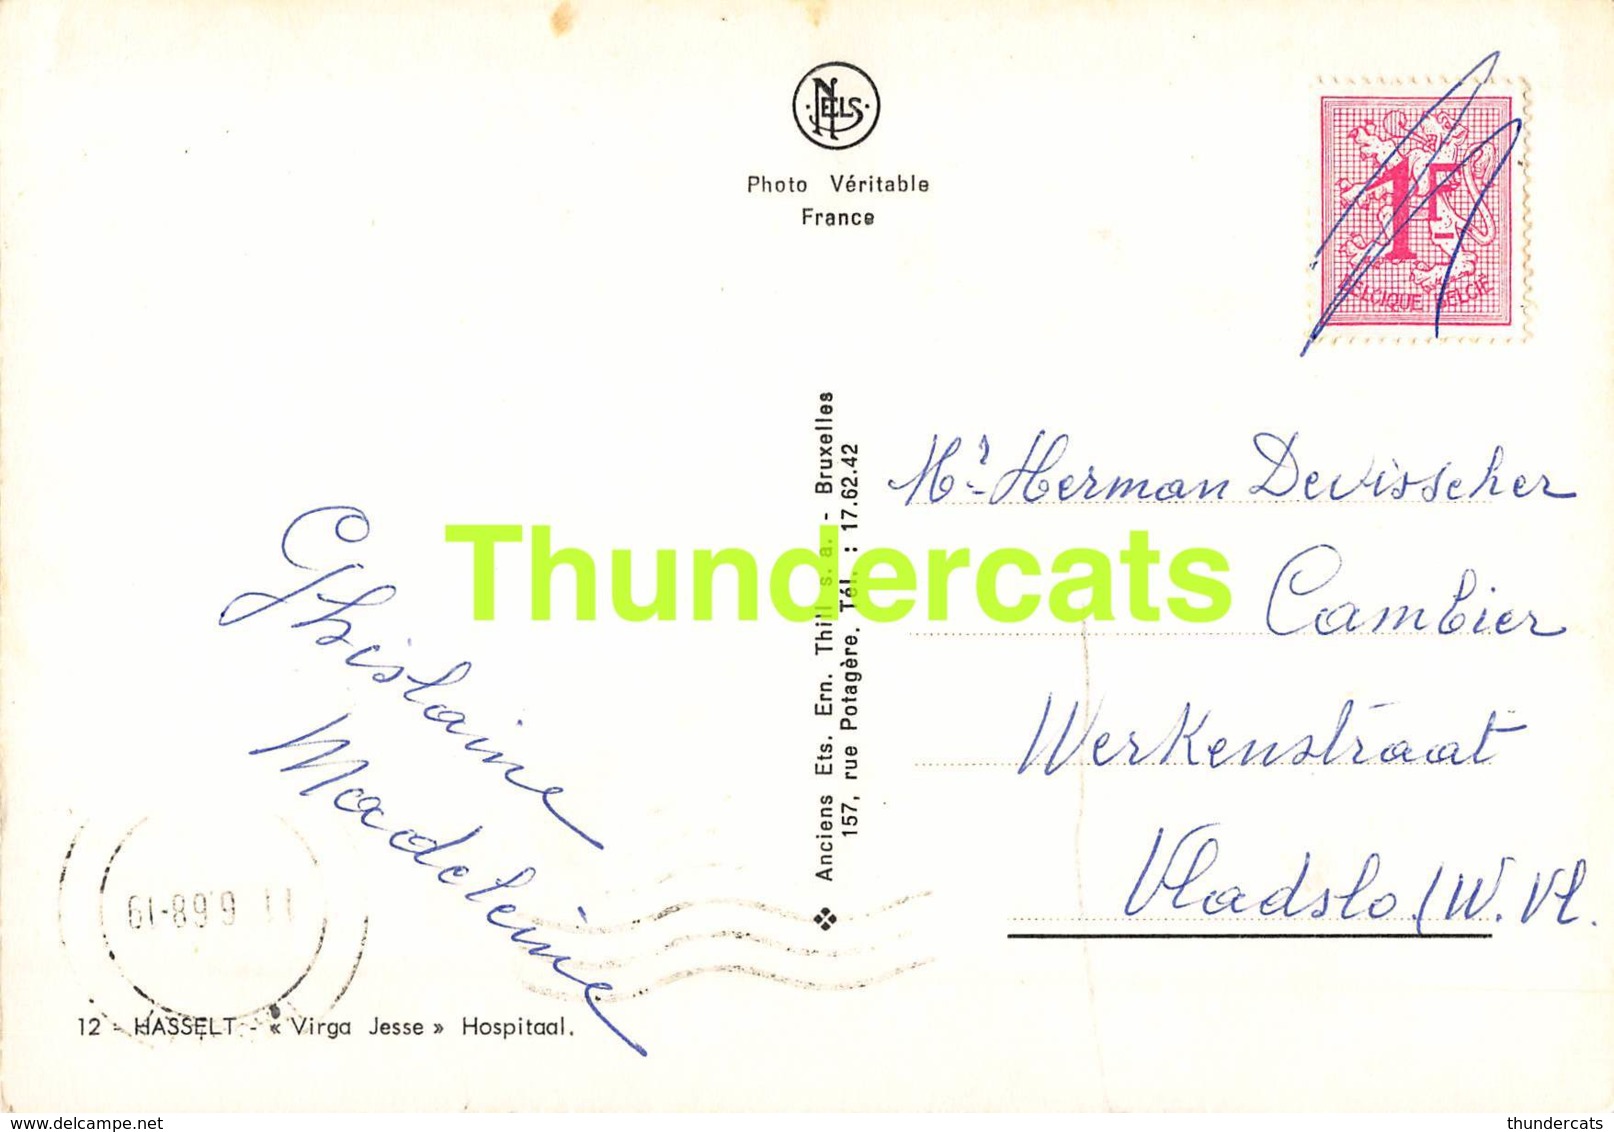 NELS
Photo Véritable
France
1F
BELGIQUE BELGIË
Anciens Ets. Ern. Thill s. a. - Bruxelles
157, rue Potagère. Tél. : 17.62.42
Mr Herman Devisscher
Cambier
Werkenstraat
Vladslo (W. Vl.
Ghislaine
Madeleine
Thundercats
12 - HASSELT - « Virga Jesse » Hospitaal.
thundercats
www.delcampe.net